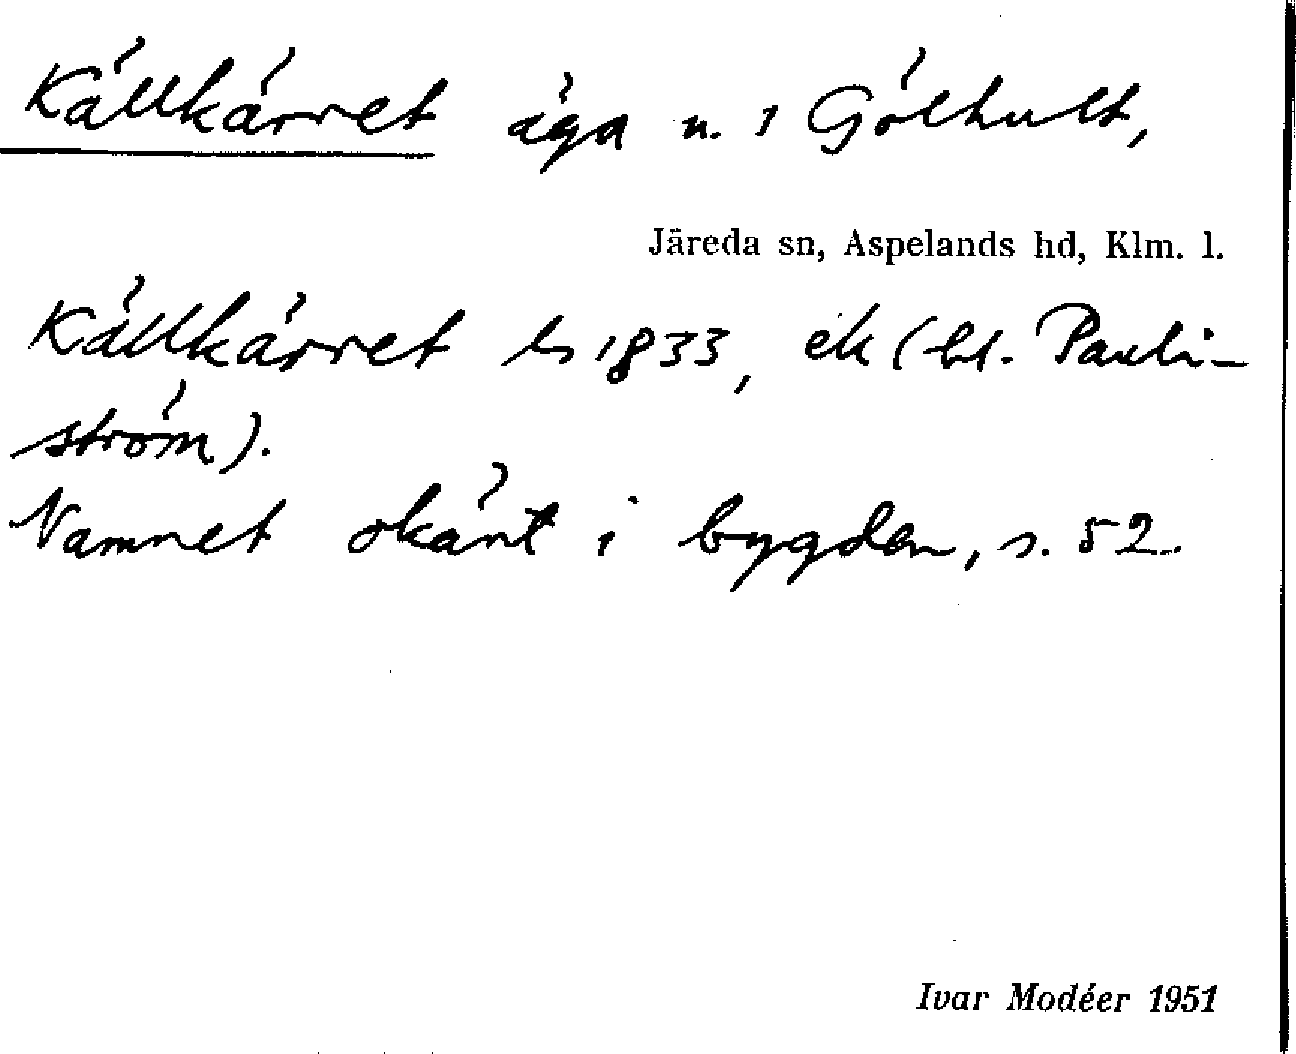 Källkärret äga u. 1 Gölhult,
Järeda sn, Aspelands hd, Klm. l.
Källkärret ls 1833, ek (bl. Pauli-
ström).
Namnet okänt i bygden, s. 52.
Ivar Modéer 1951